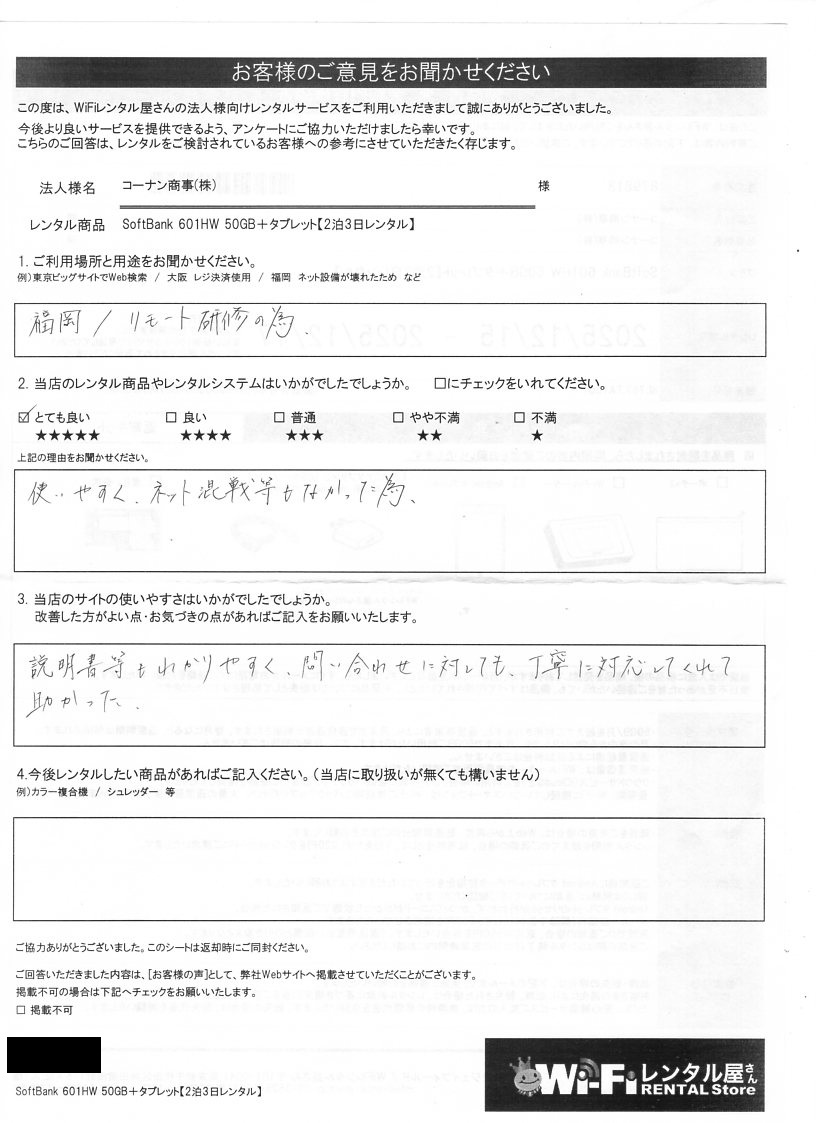 お客様のご意見をお聞かせください
この度は、WiFiレンタル屋さんの法人様向けレンタルサービスをご利用いただきまして誠にありがとうございました。
今後より良いサービスを提供できるよう、アンケートにご協力いただけましたら幸いです。
こちらのご回答は、レンタルをご検討されているお客様への参考にさせていただきたく存じます。
法人様名 コーナン商事(株) 様
レンタル商品 SoftBank 601HW 50GB+タブレット【2泊3日レンタル】
1. ご利用場所と用途をお聞かせください。
例)東京ビッグサイトでWeb検索 / 大阪 レジ決済使用 / 福岡 ネット設備が壊れたため など
福岡 / リモート研修の為.
2. 当店のレンタル商品やレンタルシステムはいかがでしたでしょうか。 □にチェックをいれてください。
☑ とても良い □ 良い □ 普通 □ やや不満 □ 不満
★★★★★ ★★★★ ★★★ ★★ ★
上記の理由をお聞かせください。
使いやすく、ネット混戦等もなかった為、
3. 当店のサイトの使いやすさはいかがでしたでしょうか。
改善した方がよい点・お気づきの点があればご記入をお願いいたします。
説明書等もわかりやすく、問い合わせに対しても、丁寧に対応してくれて
助かった.
4.今後レンタルしたい商品があればご記入ください。(当店に取り扱いが無くても構いません)
例)カラー複合機 / シュレッダー 等
ご協力ありがとうございました。このシートは返却時にご同封ください。
ご回答いただきました内容は、[お客様の声]として、弊社Webサイトへ掲載させていただくことがございます。
掲載不可の場合は下記へチェックをお願いいたします。
□ 掲載不可
SoftBank 601HW 50GB+タブレット【2泊3日レンタル】
Wi-Fiレンタル屋さん
RENTAL Store